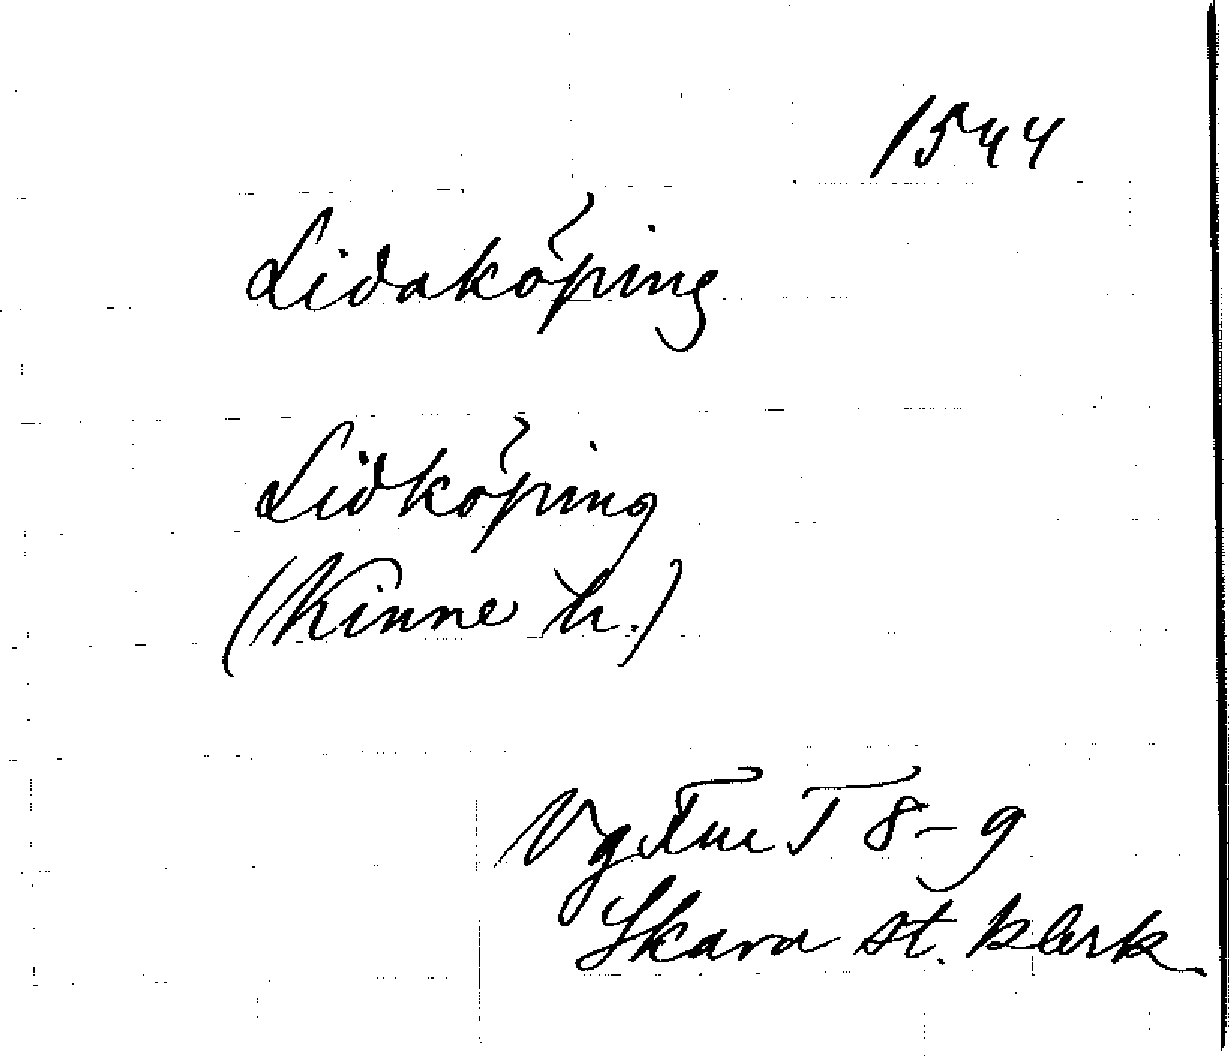 1544
Lidaköping
Lidköping
(Kinne h.)
Vg Fue T 8-9
Skara st. klerk